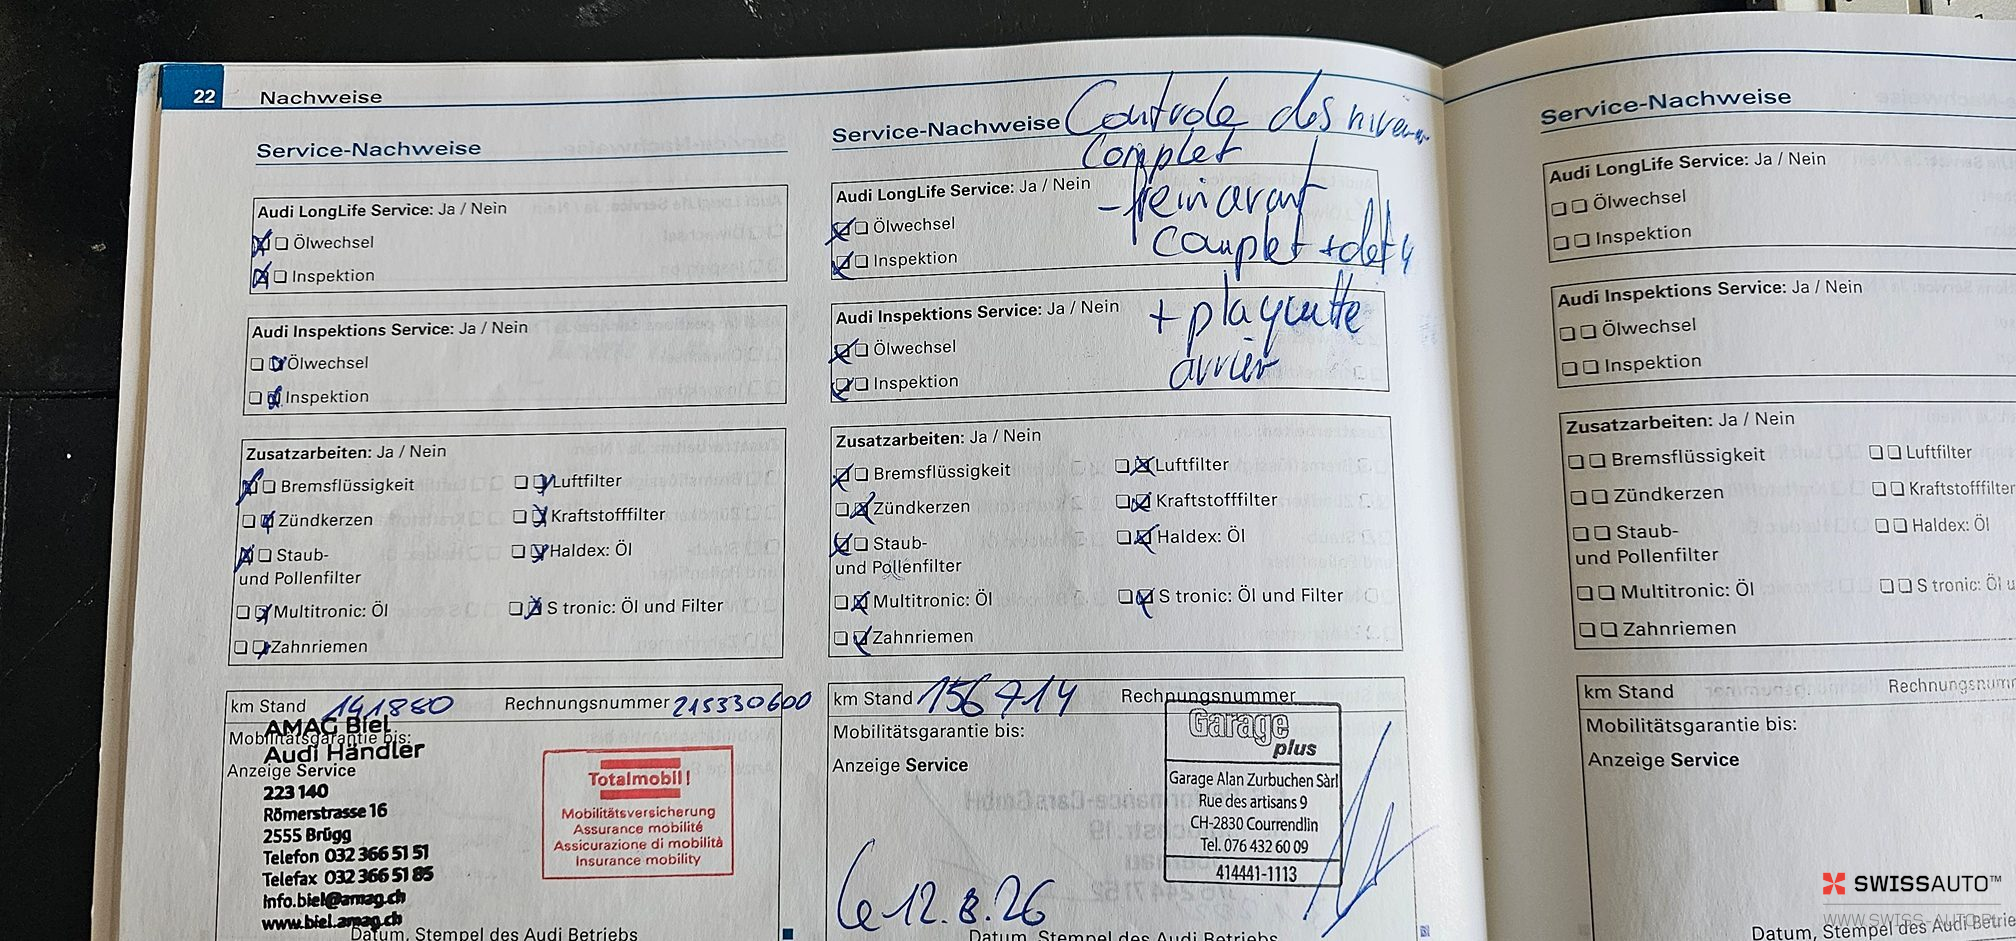 22 Nachweise
Service-Nachweise
Audi LongLife Service: Ja / Nein
Ölwechsel
Inspektion
Audi Inspektions Service: Ja / Nein
Ölwechsel
Inspektion
Zusatzarbeiten: Ja / Nein
Bremsflüssigkeit Luftfilter
Zündkerzen Kraftstofffilter
Staub- Haldex: Öl
und Pollenfilter
Multitronic: Öl S tronic: Öl und Filter
Zahnriemen
km Stand 141880 Rechnungsnummer 215330600
Mobilitätsgarantie bis:
Anzeige Service
AMAG Biel
Audi Händler
223 140
Römerstrasse 16
2555 Brügg
Telefon 032 366 51 51
Telefax 032 366 51 85
Info.biel@amag.ch
www.biel.amag.ch
Totalmobil!
Mobilitätsversicherung
Assurance mobilité
Assicurazione di mobilità
Insurance mobility
Datum, Stempel des Audi Betriebs
Service-Nachweise
Controle des
complet
- frein avant
complet +
+ plaquette
arrièr
Audi LongLife Service: Ja / Nein
Ölwechsel
Inspektion
Audi Inspektions Service: Ja / Nein
Ölwechsel
Inspektion
Zusatzarbeiten: Ja / Nein
Bremsflüssigkeit Luftfilter
Zündkerzen Kraftstofffilter
Staub- Haldex: Öl
und Pollenfilter
Multitronic: Öl S tronic: Öl und Filter
Zahnriemen
km Stand 156714 Rechnungsnummer
Mobilitätsgarantie bis:
Anzeige Service
Garage
plus
Garage Alan Zurbuchen Sàrl
Rue des artisans 9
CH-2830 Courrendlin
Tel. 076 432 60 09
414441-1113
Le 12.8.26
Datum, Stempel des Audi Betriebs
Service-Nachweise
Audi LongLife Service: Ja / Nein
Ölwechsel
Inspektion
Audi Inspektions Service: Ja / Nein
Ölwechsel
Inspektion
Zusatzarbeiten: Ja / Nein
Bremsflüssigkeit Luftfilter
Zündkerzen Kraftstofffilter
Staub- Haldex: Öl
und Pollenfilter
Multitronic: Öl S tronic: Öl u
Zahnriemen
km Stand Rechnungsnum
Mobilitätsgarantie bis:
Anzeige Service
Datum, Stempel des Audi Betrie
SWISSAUTO™